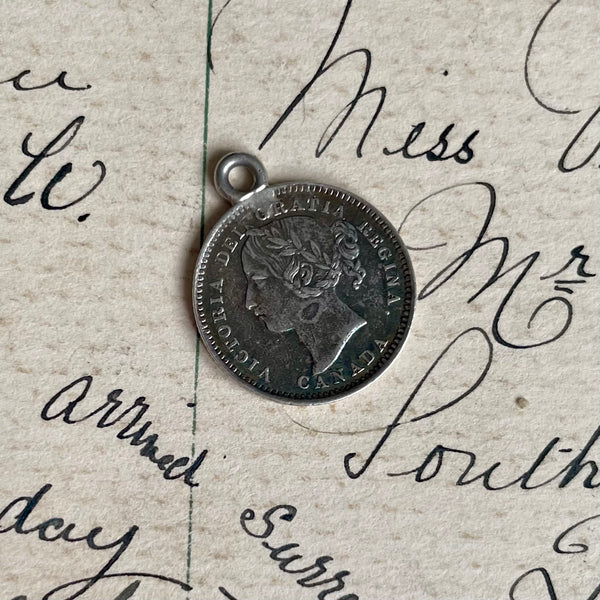 Miss
W.
VICTORIA DEI GRATIA REGINA.
CANADA
Mr
arrived
South
day
Surre